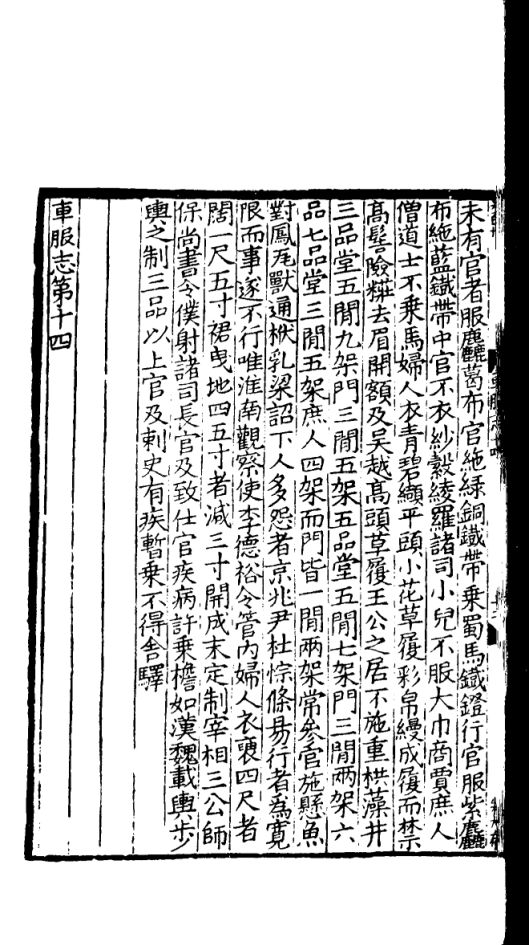 未有官者服麤葛布官絁綠銅鐵帶乗蜀馬鐵鐙行官服紫麤
布絁藍鐵帶中官不衣紗縠綾羅諸司小兒不服大巾商賈庶人
僧道士不乘馬婦人衣青碧纈平頭小花草履彩帛縵成履而禁
高髻險糚去眉開額及吴越高頭草履王公之居不施重栱藻井
三品堂五閒九架門三閒五架五品堂五閒七架門三閒兩架六
品七品堂三閒五架庶人四架而門皆一閒兩架常參官施懸魚
對鳳瓦獸通栿乳梁詔下人多怨者京兆尹杜悰條易行者爲寛
限而事遂不行唯淮南觀察使李德裕令管内婦人衣褏四尺者
闊一尺五寸裙曳地四五寸者減三寸開成末定制宰相三公師
保尚書令僕射諸司長官及致仕官疾病許乗檐如漢魏載輿步
輿之制三品以上官及刺史有疾暫乗不得舍驛
車服志第十四